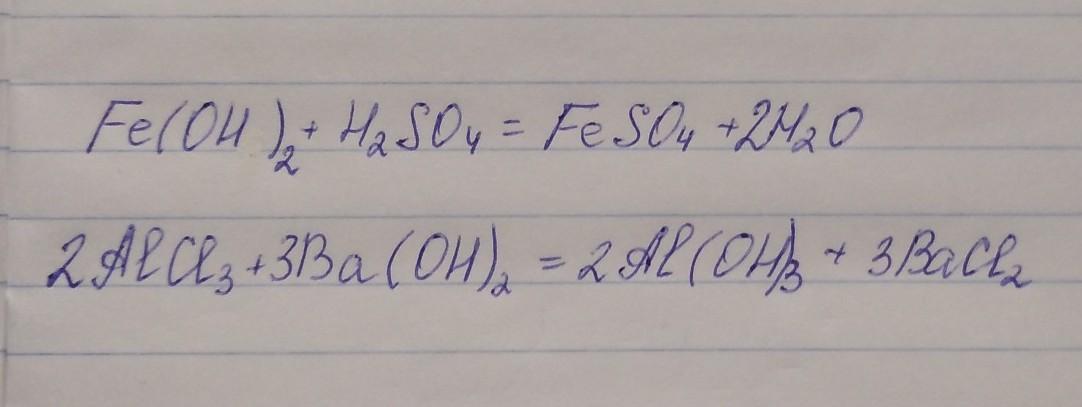 Fe(OH)₂ + H₂SO₄ = FeSO₄ + 2H₂O
2AlCl₃ + 3Ba(OH)₂ = 2Al(OH)₃ + 3BaCl₂